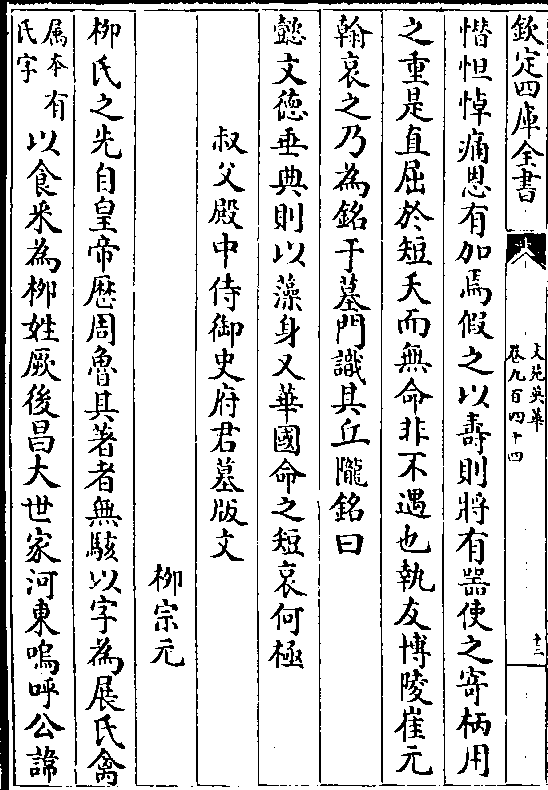 欽定四庫全書
文苑英華
卷九百四十四
十二
惜怛悼痛恩有加焉假之以壽則將有器使之寄柄用
之重是直屈於短夭而無命非不遇也執友博陵崔元
翰哀之乃為銘于墓門識其丘隴銘曰
懿文徳垂典則以藻身又華國命之短哀何極
叔父殿中侍御史府君墓版文
柳宗元
柳氏之先自皇帝歴周魯其著者無駭以字為展氏禽
以食采為柳姓厥後昌大世家河東嗚呼公諱
属本有
氏字